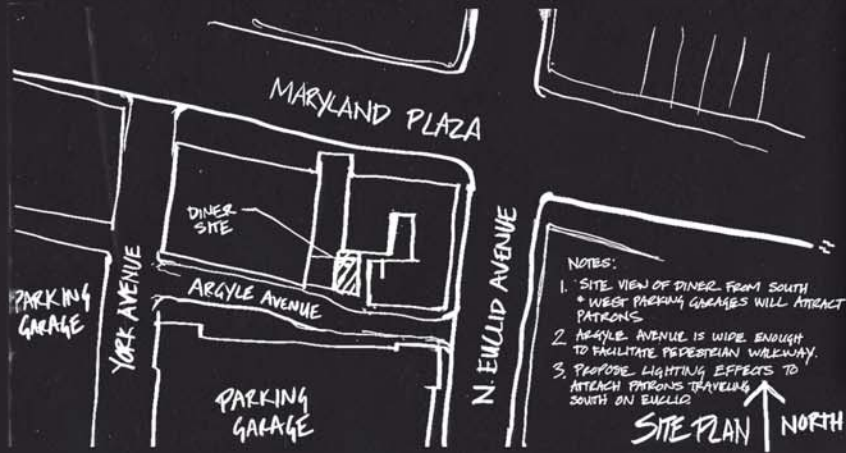 MARYLAND PLAZA
DINER
SITE
ARGYLE AVENUE
PARKING
GARAGE
YORK AVENUE
N. EUCLID AVENUE
PARKING
GARAGE
NOTES:
1. SITE VIEW OF DINER FROM SOUTH
& WEST PARKING GARAGES WILL ATTRACT
PATRONS
2 ARGYLE AVENUE IS WIDE ENOUGH
TO FACILITATE PEDESTRIAN WALKWAY.
3. PROPOSE LIGHTING EFFECTS TO
ATTRACT PATRONS TRAVELING
SOUTH ON EUCLID
SITE PLAN
NORTH